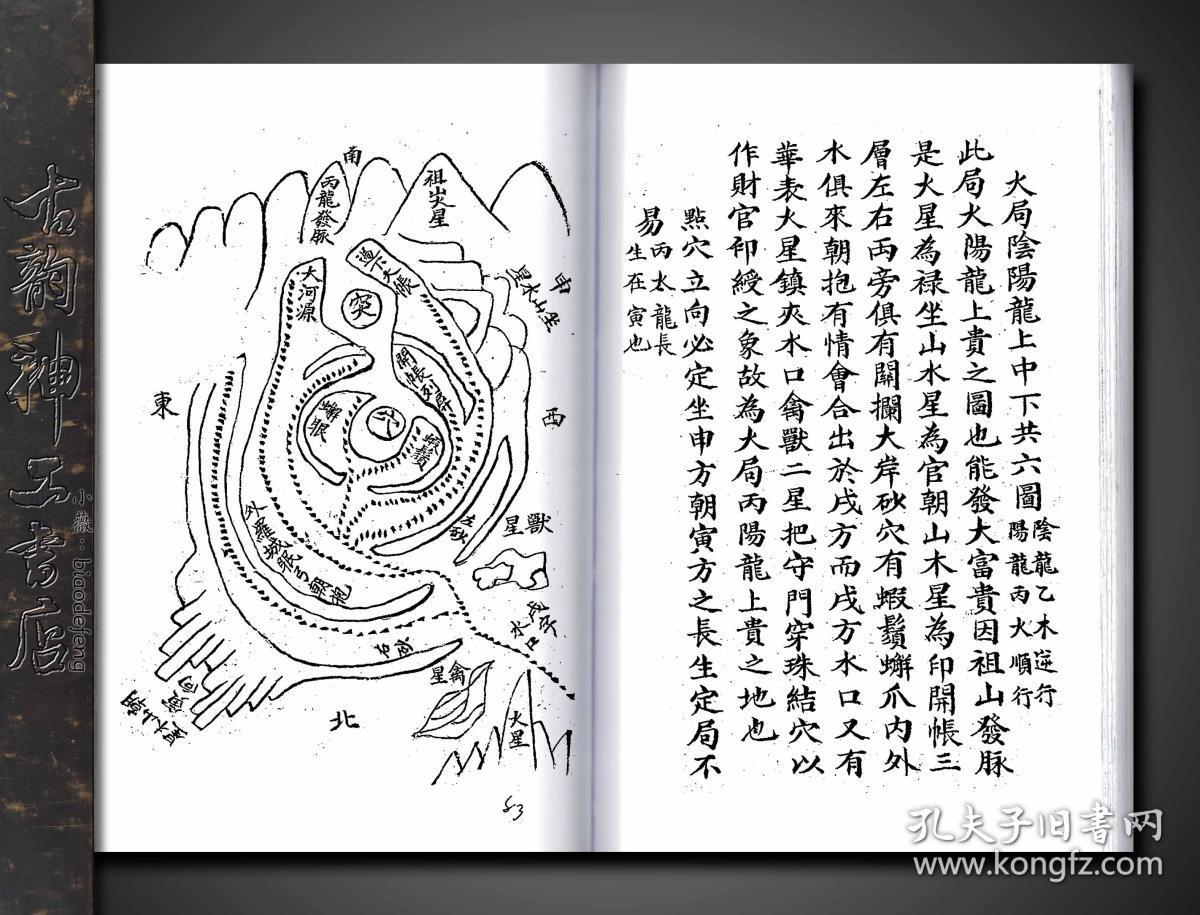 火局陰陽龍上中下共六圖
陰龍乙木逆行
陽龍丙火順行
此局火陽龍上貴之圖也能發大富貴因祖山發脉
是火星為禄坐山水星為官朝山木星為印開帳三
層左右兩旁俱有關攔大岸砂穴有蝦鬚蠏爪内外
水俱來朝抱有情會合出於戌方而戌方水口又有
華表火星鎮夾水口禽獸二星把守門穿珠結穴以
作財官印綬之象故為火局丙陽龍上貴之地也
點穴立向必定坐申方朝寅方之長生定局不
易
丙火龍長
生在寅也
南
祖火星
丙龍發脉
大河源
突
開帳列屏
穴
蠏眼
申
坐山水星
東
西
左砂
獸星
外羅城眠弓朝抱
右砂
水口
禽星
火星
北
53
古韵神工书店
小薇：biaodefeng
孔夫子旧书网
www.kongfz.com